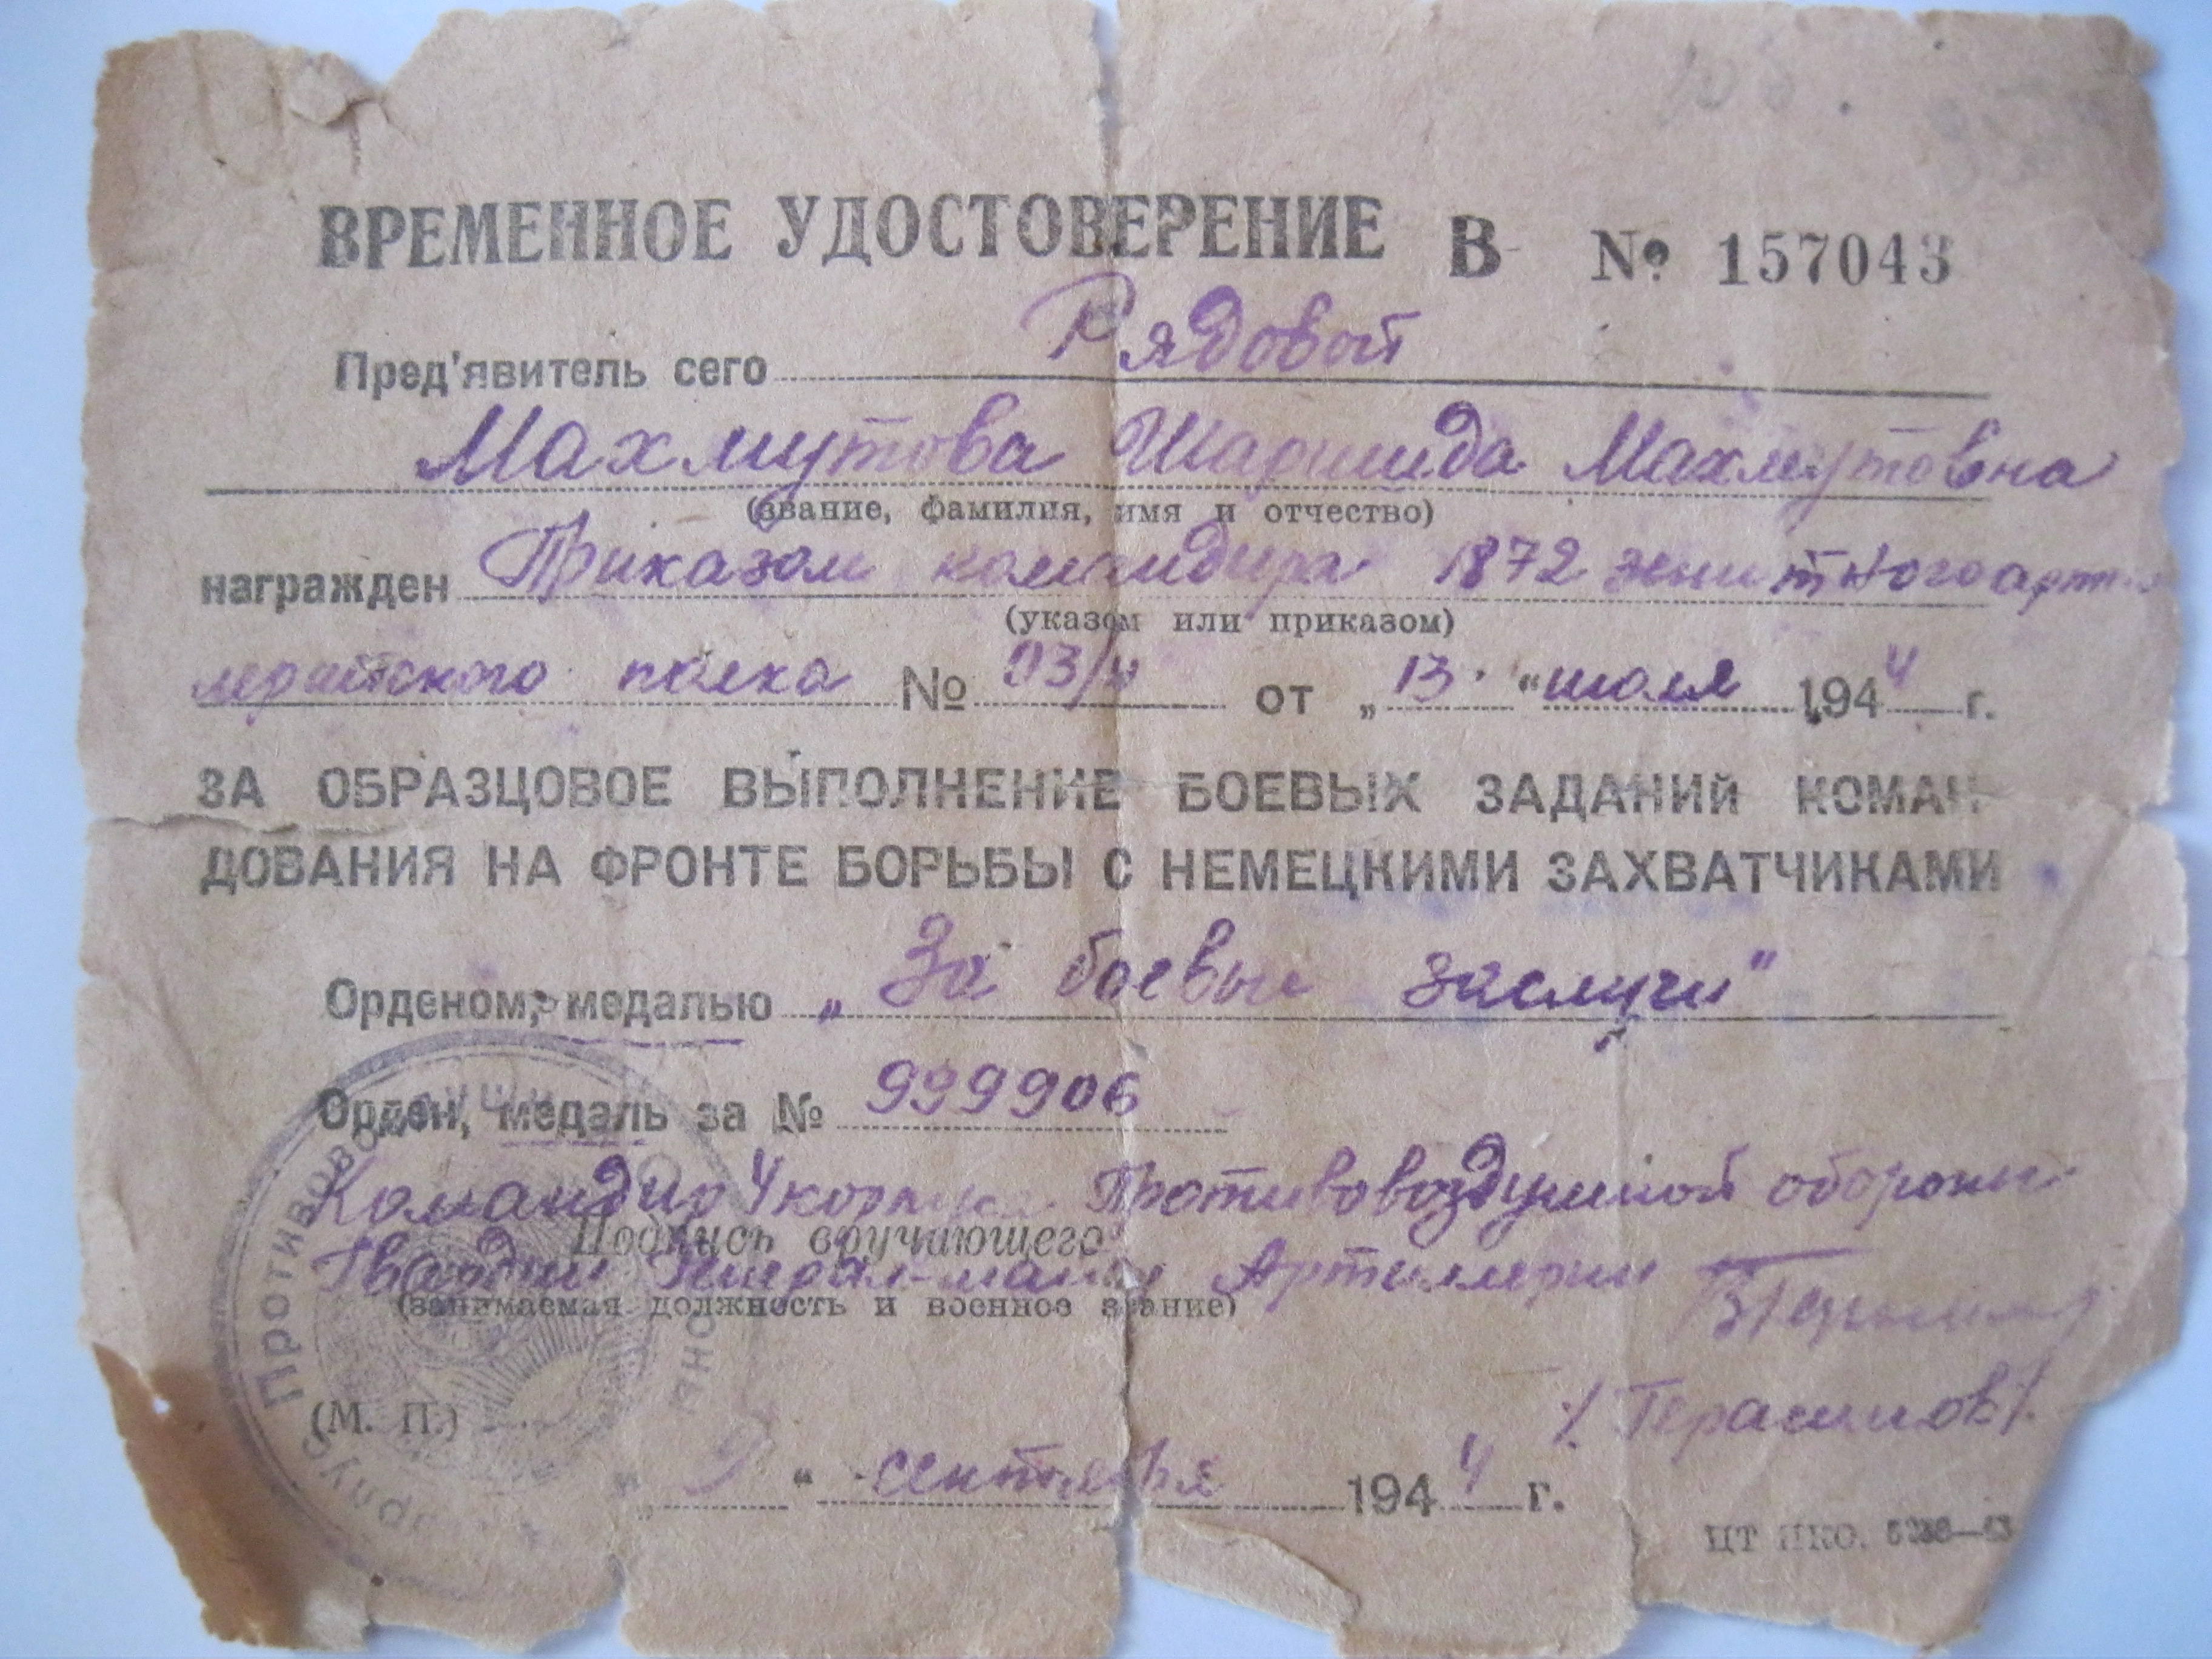 ВРЕМЕННОЕ УДОСТОВЕРЕНИЕ В № 157043
Пред'явитель сего Рядовой
Махмутова Махмутовна
(звание, фамилия, имя и отчество)
награжден Приказом командира 1872 зенитного арти
лерийского полка № 03/н от „13" июля 1944 г.
(указом или приказом)
ЗА ОБРАЗЦОВОЕ ВЫПОЛНЕНИЕ БОЕВЫХ ЗАДАНИЙ КОМАН-
ДОВАНИЯ НА ФРОНТЕ БОРЬБЫ С НЕМЕЦКИМИ ЗАХВАТЧИКАМИ
Орденом, медалью „За боевые заслуги"
Орден, медаль за № 999906
Командир 4 корпуса Противовоздушной обороны
Подпись вручающего
Гвардии Генерал-майор Артиллерии
(занимаемая должность и военное звание)
/Герасимов/
(М. П.)
„ " сентября 1944 г.
ЦТ НКО.